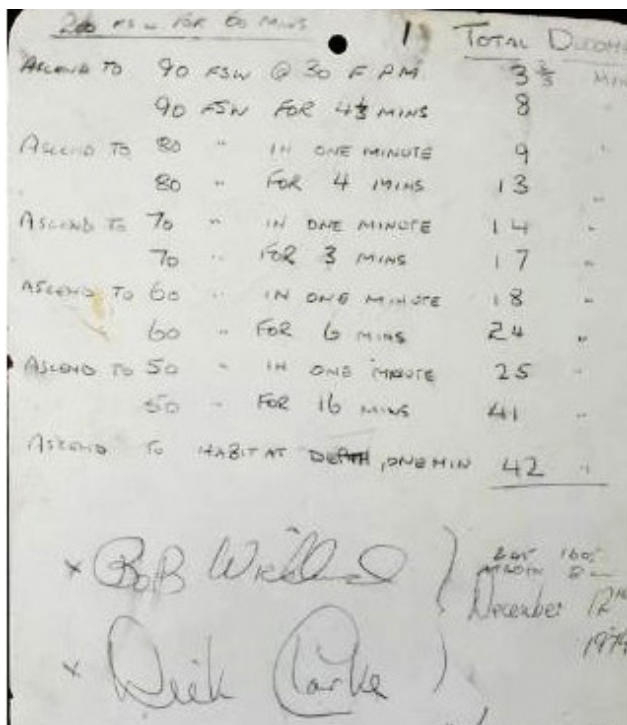 200 FSW FOR 60 MINS
1 TOTAL DECOM
ASCEND TO 90 FSW @ 30 F P M. 3 2/3 MIN
90 FSW FOR 4 1/3 MINS 8 "
ASCEND TO 80 " IN ONE MINUTE 9 "
80 " FOR 4 MINS 13 "
ASCEND TO 70 " IN ONE MINUTE 14 "
70 " FOR 3 MINS 17 "
ASCEND TO 60 " IN ONE MINUTE 18 "
60 " FOR 6 MINS 24 "
ASCEND TO 50 " IN ONE MINUTE 25 "
50 " FOR 16 MINS 41 "
ASCEND TO HABITAT DEPTH, ONE MIN 42 "
x Bob
December 12th
1979
x Dick Clarke